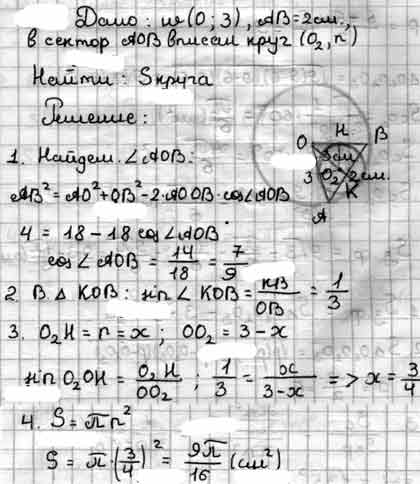 Дано: w(0; 3), AB=2см.,
в сектор AOB вписан круг (O₂, r)
Найти: Sкруга
Решение:
H
O
B
3см
3
O₂
2см.
K
A
1. Найдем ∠AOB:
AB²=AO²+OB²-2·AO·OB·cos∠AOB
4 = 18 - 18 cos∠AOB
cos∠AOB = 14/18 = 7/9
2. В Δ KOB: sin∠KOB = KB/OB = 1/3
3. O₂H = r = x; OO₂ = 3 - x
sin O₂OH = O₂H/OO₂; 1/3 = x/3-x => x = 3/4
4. S = πr²
S = π·(3/4)² = 9π/16 (см²)